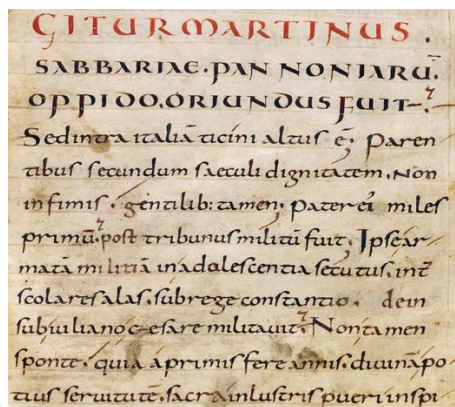 GITUR MARTINUS.
SABBARIAE·PANNONIARŪ·
OPPIDO·ORIUNDUS FUIT·
Sed intra italiā ticini altus ē· Paren
tibus secundum saeculi dignitatem· Non
infimis· gentilib: tamen· Pater ei miles
primū· post tribunus militū fuit· Ipse ar
matā militiā in adolescentia secutus· int
scolares alas· sub rege constantio· dein
sub iuliano cęsare militauit· Non tamen
sponte· quia a primis fere annis· diuinā po
tius seruitutē· sacra inlustris pueri inspi